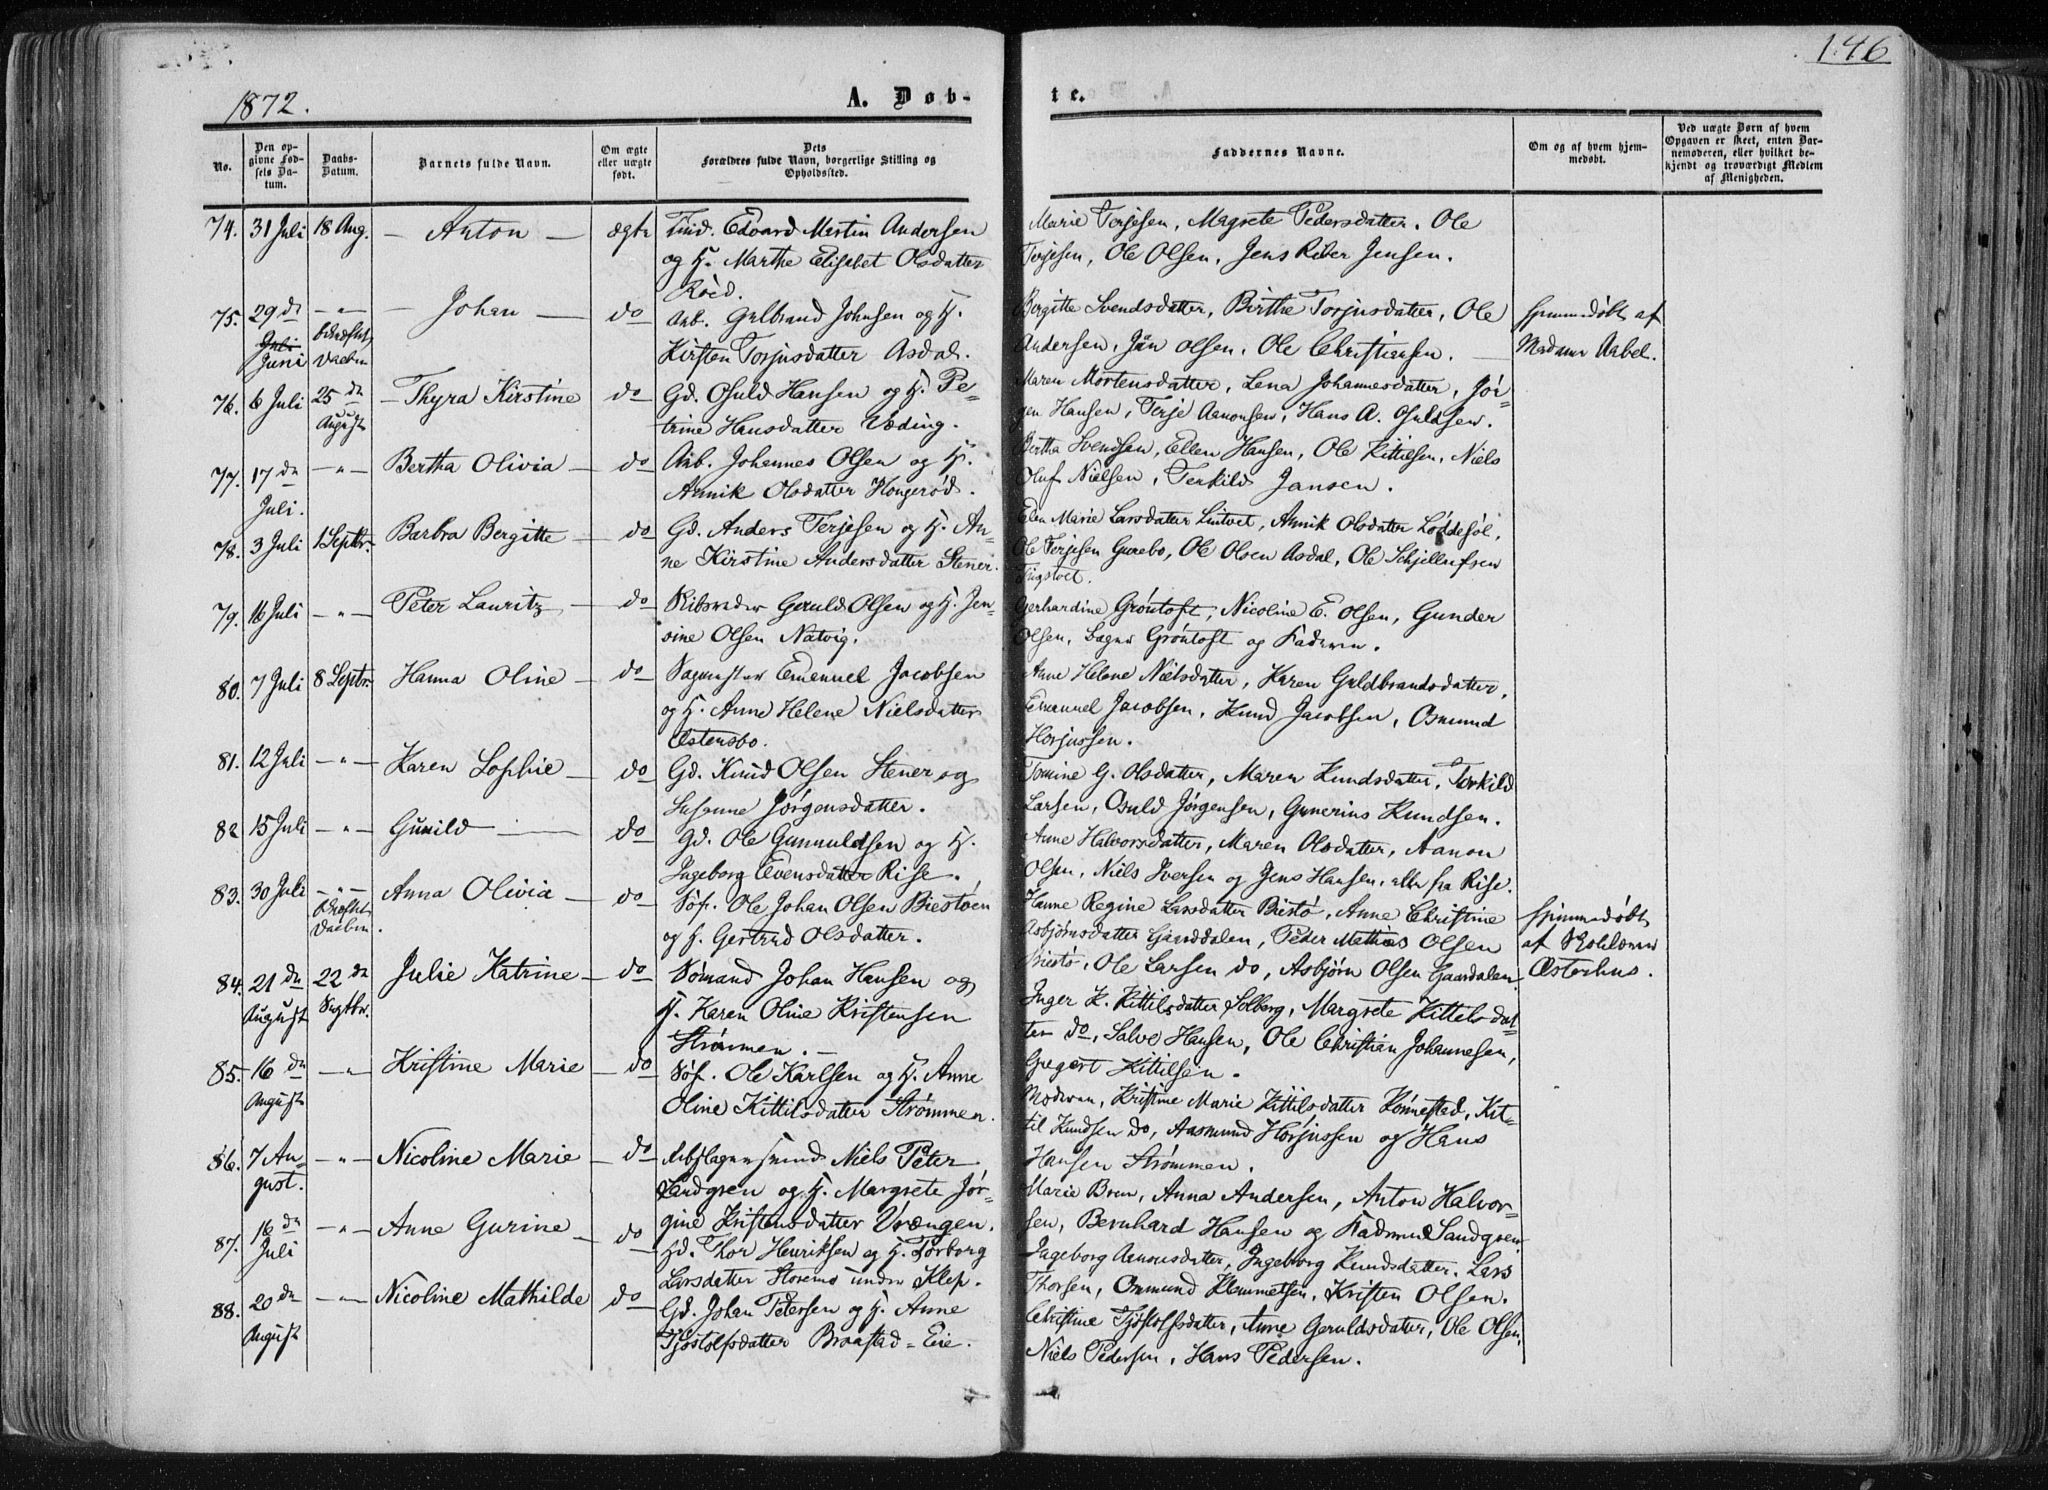 146
1872.
A. Døb-
te.
No.
Den opgivne Fødsels Datum.
Daabs-Datum.
Barnets fulde Navn.
Om ægte eller uægte født.
Dets Forældres fulde Navn, borgerlige Stilling og Opholdssted.
Faddernes Navne.
Om og af hvem hjemmedøbt.
Ved uægte Børn af hvem Opgaven er skeet, enten Barnemoderen, eller hvilket bekjendt og troværdigt Medlem af Menigheden.
74. 31 Juli 18 Aug. — Anton — ægte
Edvard Martin Andersen
og H. Marthe Elisabet Olsdatter
Röed.
Marie Torjesen, Magrete Pedersdatter. Ole
Terjesen, Ole Olsen, Jens Riber Jensen.
75. 29 de Juli Juni —"— — Johan — do
Arb. Gulbrand Johnsen og H.
Kirsten Torjusdatter Asdal.
Bergitte Svendsdatter, Birthe Torjusdatter, Ole
Andersen, Jån Olsen, Ole Christiansen. —
Hjemmedøbt af
Madame Aabel.
76. 6 Juli 25 de August — Thyra Kirstine do
Gd. Osuld Hansen og H. Pe-
trine Hansdatter Væding.
Maren Mortensdatter, Lena Johannesdatter, Jör-
gen Hansen, Terje Aanonsen, Hans A. Osuldsen.
77. 17 de Juli. —"— Bertha Olivia — do
Arb. Johannes Olsen og H.
Annik Olsdatter Hougerød.
Bertha Svendsen, Ellen Hansen, Ole Kittilsen, Niels
Oluf Nielsen, Terkild Jansen.
78. 3 Juli 1 Septbr. Barbra Bergitte — do
Gd. Anders Terjesen og H. An-
ne Kirstine Andersdatter Stener.
Elen Marie Larsdatter Lintvet, Annik Olsdatter Løddesøl,
Ole Terjesen Gurebo, Ole Olsen Asdal, Ole Schjellufsen
79. 16 Juli —"— Peter Lauritz — do
Skibsreder Geruld Olsen og H. Jen-
sine Olsen Natvig.
Gerhardine Gröntoft, Nicoline E. Olsen, Gunder
Olsen, Gröntoft og Faderen.
80. 7 Juli 8 Septbr. Hanna Oline — do
Sagmester Emanuel Jacobsen
og H. Anne Helene Nielsdatter
Østensbo.
Anne Helene Nielsdatter, Karen Guldbrandsdatter,
Emanuel Jacobsen, Knud Jacobsen, Osmund
Horjussen.
81. 12 Juli —"— Karen Sophie — do
Gd. Knud Olsen Stener og
Susanne Jörgensdatter.
Tomine G. Olsdatter, Maren Knudsdatter, Terkild
Larsen, Osuld Jörgensen, Gunerius Knudsen.
82 15 Juli —"— Gunild — do
Gd. Ole Gunnuldsen og H.
Ingeborg Evensdatter Rise.
Anne Halvorsdatter, Maren Olsdatter, Aanon
Olsen, Niels Iversen og Jens Hansen, alle fra Rise.
83. 30 Juli —"— Anna Olivia — do
Söf. Ole Johan Olsen Biestöen
og H. Gertrud Olsdatter.
Hanne Regine Larsdatter Biestö, Anne Christine
Asbjörnsdatter Gaarddalen, Peder Mathias Olsen
Biestö, Ole Larsen do, Asbjörn Olsen Gaardalen.
Hjemmedøbt
af
Østerhus.
84. 21 de August 22 de Septbr. Julie Katrine — do
Sömand Johan Hansen og
H. Karen Oline Kristensen
Strömmen. —
Inger K. Kittilsdatter Solberg, Margrete Kittelsdat-
ter do, Salve Hansen, Ole Christian Johannesen,
Gregert Kittilsen.
85. 16 de August —"— Kristine Marie — do
Söf. Ole Karlsen og H. Anne
Oline Kittilsdatter Strömmen.
Moderen, Kristine Marie Kittilsdatter Rönnestad, Kit-
til Knudsen do, Aasmund Horjussen og Hans
Hansen Strömmen.
86. 7 August. —"— Nicoline Marie — do
Niels Peter
Sandgren og H. Margrete Jör-
gine Kristensdatter Vrængen.
Marie Brun, Anna Andersen, Anton Halvor-
sen, Bernhard Hansen og Faderen Sandgren.
87. 16 de Juli —"— Anne Gurine — do
Hd. Thor Henriksen og H. Torborg
Larsdatter Storemo under Klep.
Ingeborg Aanonsdatter, Ingeborg Knudsdatter. Lars
Thorsen, Ommund Klemmetsen, Kristen Olsen.
88. 20 de August —"— Nicoline Mathilde do
Gd. Johan Petersen og H. Anne
Tjöstolfsdatter Braastad-Eie.
Christine Tjöstolfsdatter, Anne Geruldsdatter, Ole Olsen,
Niels Pedersen, Hans Pedersen.